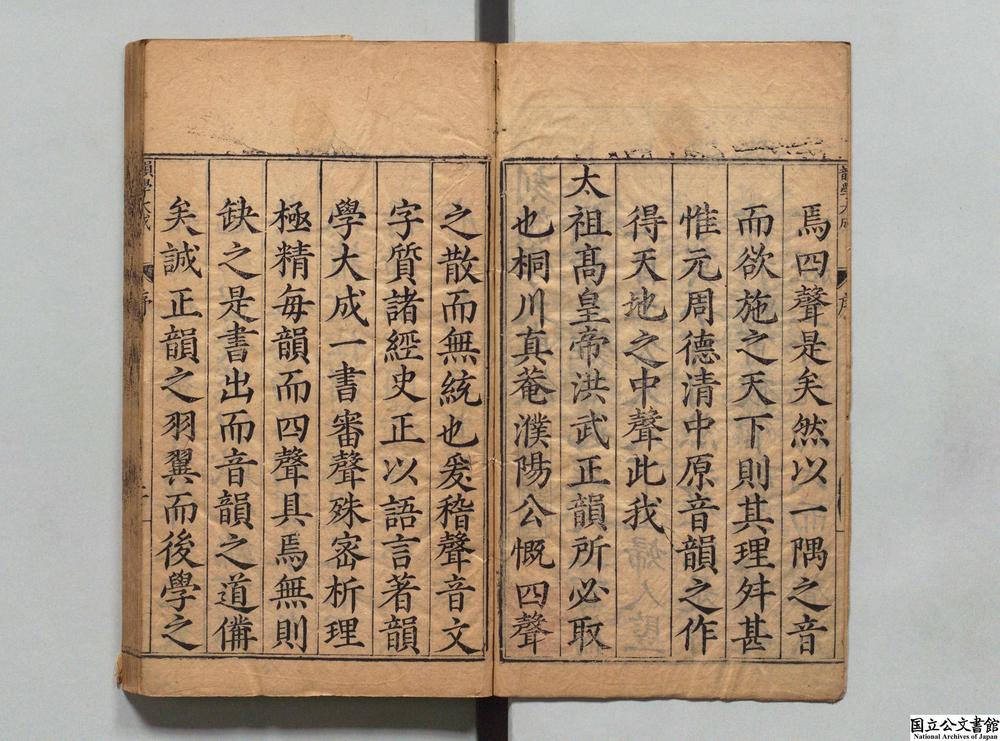 焉四聲是矣然以一隅之音
而欲施之天下則其理舛甚
惟元周德清中原音韻之作
得天地之中聲此我
太祖髙皇帝洪武正韻所必取
也桐川真菴濮陽公慨四聲
之散而無統也爰稽聲音文
字質諸經史正以語言著韻
學大成一書審聲殊宻析理
極精每韻而四聲具焉無則
缺之是書出而音韻之道備
矣誠正韻之羽翼而後學之
韻學大成
序
国立公文書館
National Archives of Japan